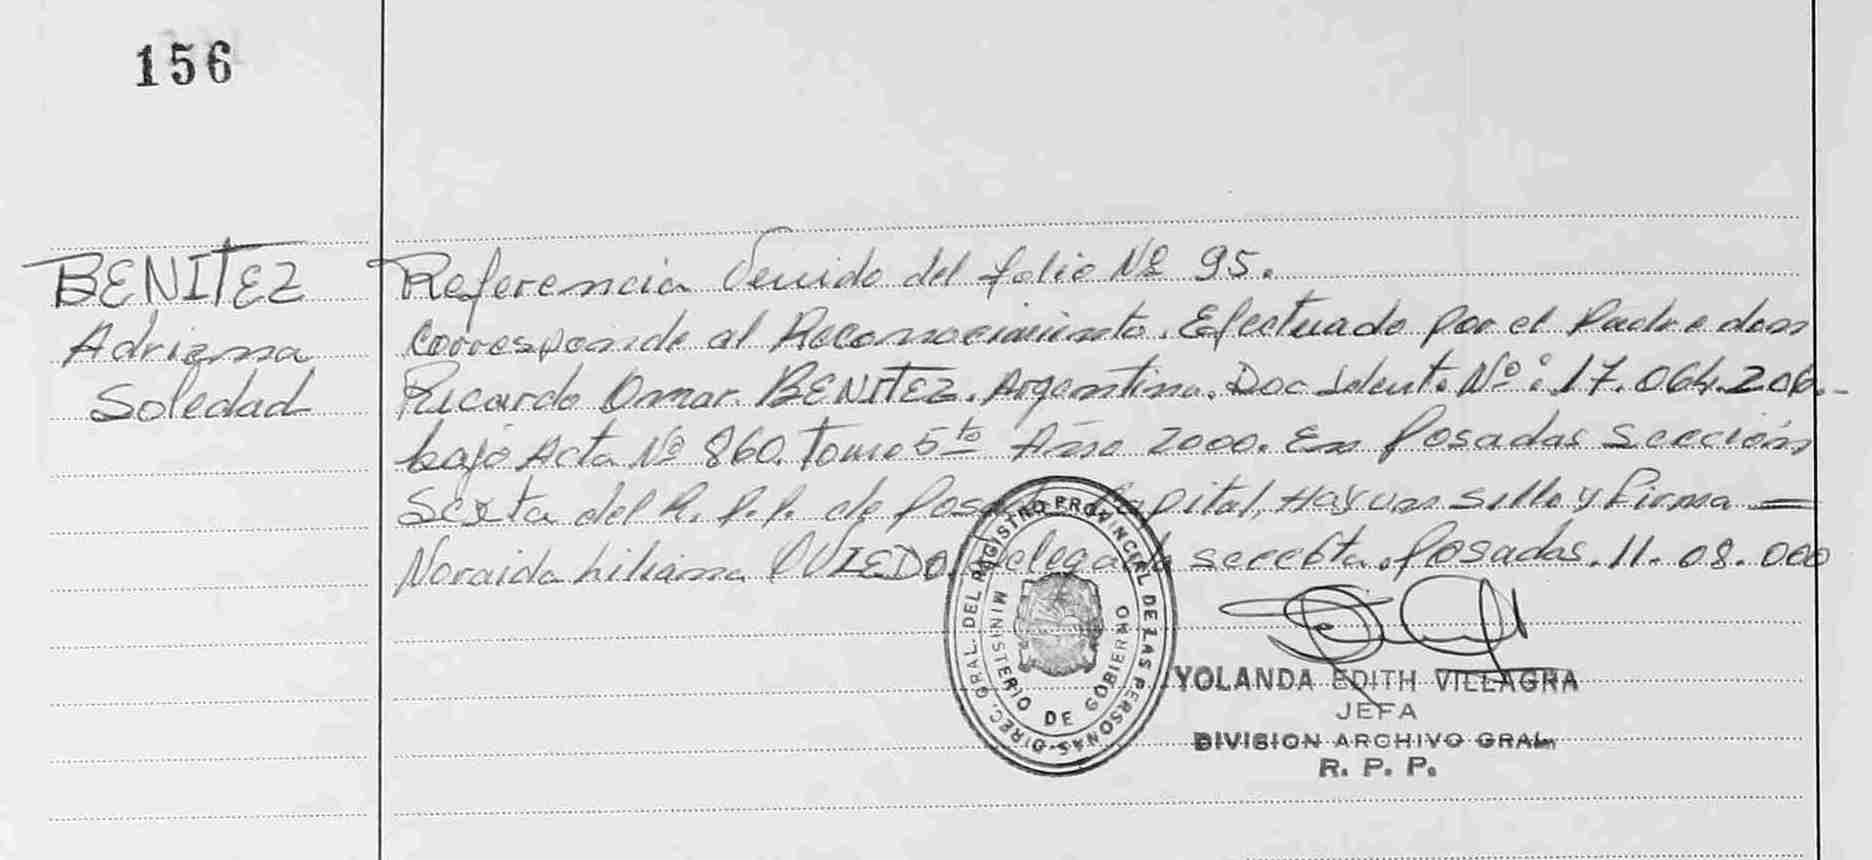 156
BENITEZ
Adriana
Soledad
Referencia Venido del folio Nº 95.
Corresponde al Reconocimiento. Efectuado por el Padre don
Ricardo Omar BENITEZ. Argentino. Doc Ident. Nº: 17.064.206.-
bajo Acta Nº 860. Tomo 5to Año 2000. En Posadas Sección
Sexta del R.P.P. de Posadas Capital, Hay un Sello y Firma =
Noraida Liliana OVIEDO. Delegada Posadas. 11.08.000
DIREC. GRAL. DEL REGISTRO PROVINCIAL DE LAS PERSONAS
MINISTERIO DE GOBIERNO
YOLANDA EDITH VILLAGRA
JEFA
DIVISION ARCHIVO GRAL.
R. P. P.